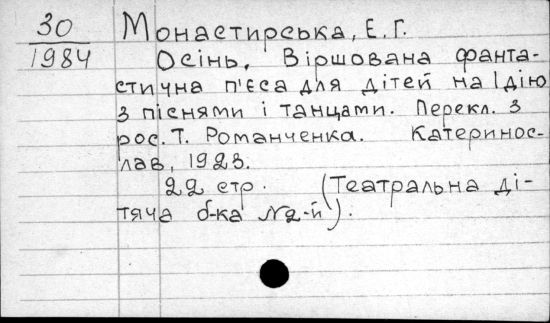 30 Монастирська, Е. Г.
1984 Осінь. Віршована фанта-
стична п'єса для дітей на 1 дію
з піснями і танцами. Перекл. з
рос. Т. Романченка. Катеринос-
лав, 1923.
22 стр. (Театральна ді-
тяча б-ка №2-й).